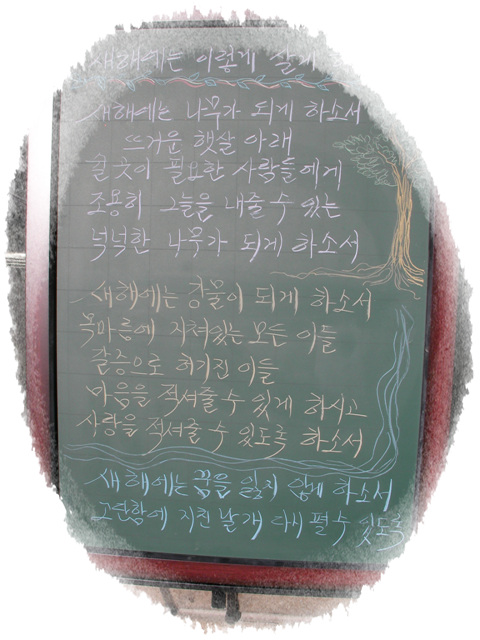 새해에는 이렇게 살게
새해에는 나무가 되게 하소서
뜨거운 햇살 아래
쉴 곳이 필요한 사람들에게
조용히 그늘을 내줄 수 있는
넉넉한 나무가 되게 하소서
새해에는 강물이 되게 하소서
목마름에 지쳐있는 모든 이들
갈증으로 허기진 이들
마음을 적셔줄 수 있게 하시고
사랑을 적셔줄 수 있도록 하소서
새해에는 꿈을 잃지 않게 하소서
고단함에 지친 날개 다시 펼 수 있도록